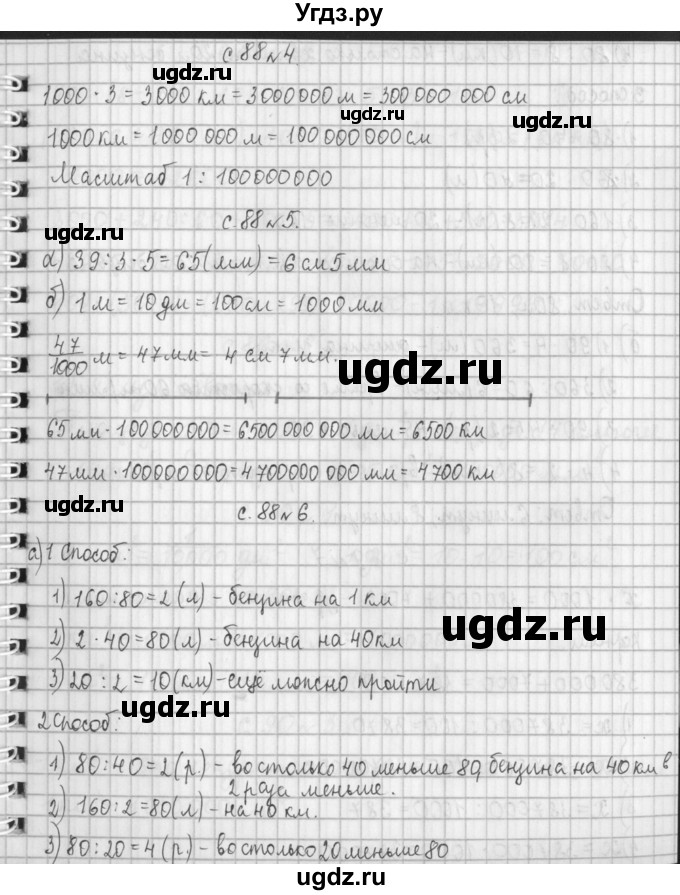 Угдз.ру
с.88 №4.
ugdz.ru
1000 · 3 = 3000 км = 3000000 м = 300 000 000 см
ugdz.ru
ugdz.ru
1000 км = 1000 000 м = 100 000 000 см
Масштаб 1 : 100000000
с.88 №5.
ugdz.ru
а) 39 : 3 · 5 = 65 (мм) = 6 см 5 мм
б) 1 м = 10 дм = 100 см = 1000 мм
47/1000 м = 47 мм = 4 см 7 мм.
ugdz.ru
65 мм · 100 000 000 = 6500 000 000 мм = 6500 км
47 мм · 100 000 000 = 4700000 000 мм = 4700 км
ugdz.ru
с. 88 №6.
а) 1 Способ:
1) 160 : 80 = 2 (л) - бензина на 1 км
ugdz.ru
2) 2 · 40 = 80 (л) - бензина на 40 км
3) 20 : 2 = 10 (км) - ещё можно пройти
ugdz.ru
2 Способ:
1) 80 : 40 = 2 (р.) - во столько 40 меньше 80, бензина на 40 км в
2 раза меньше.
2) 160 : 2 = 80 (л) - на 40 км.
ugdz.ru
3) 80 : 20 = 4 (р.) - во столько 20 меньше 80
ugdz.ru